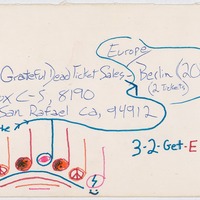 Europe
Grateful Dead Ticket Sales - Berlin (20
(2 Tickets)
ox C-S, 8190
San Rafael Ca, 94912
the
3-2-Get-E